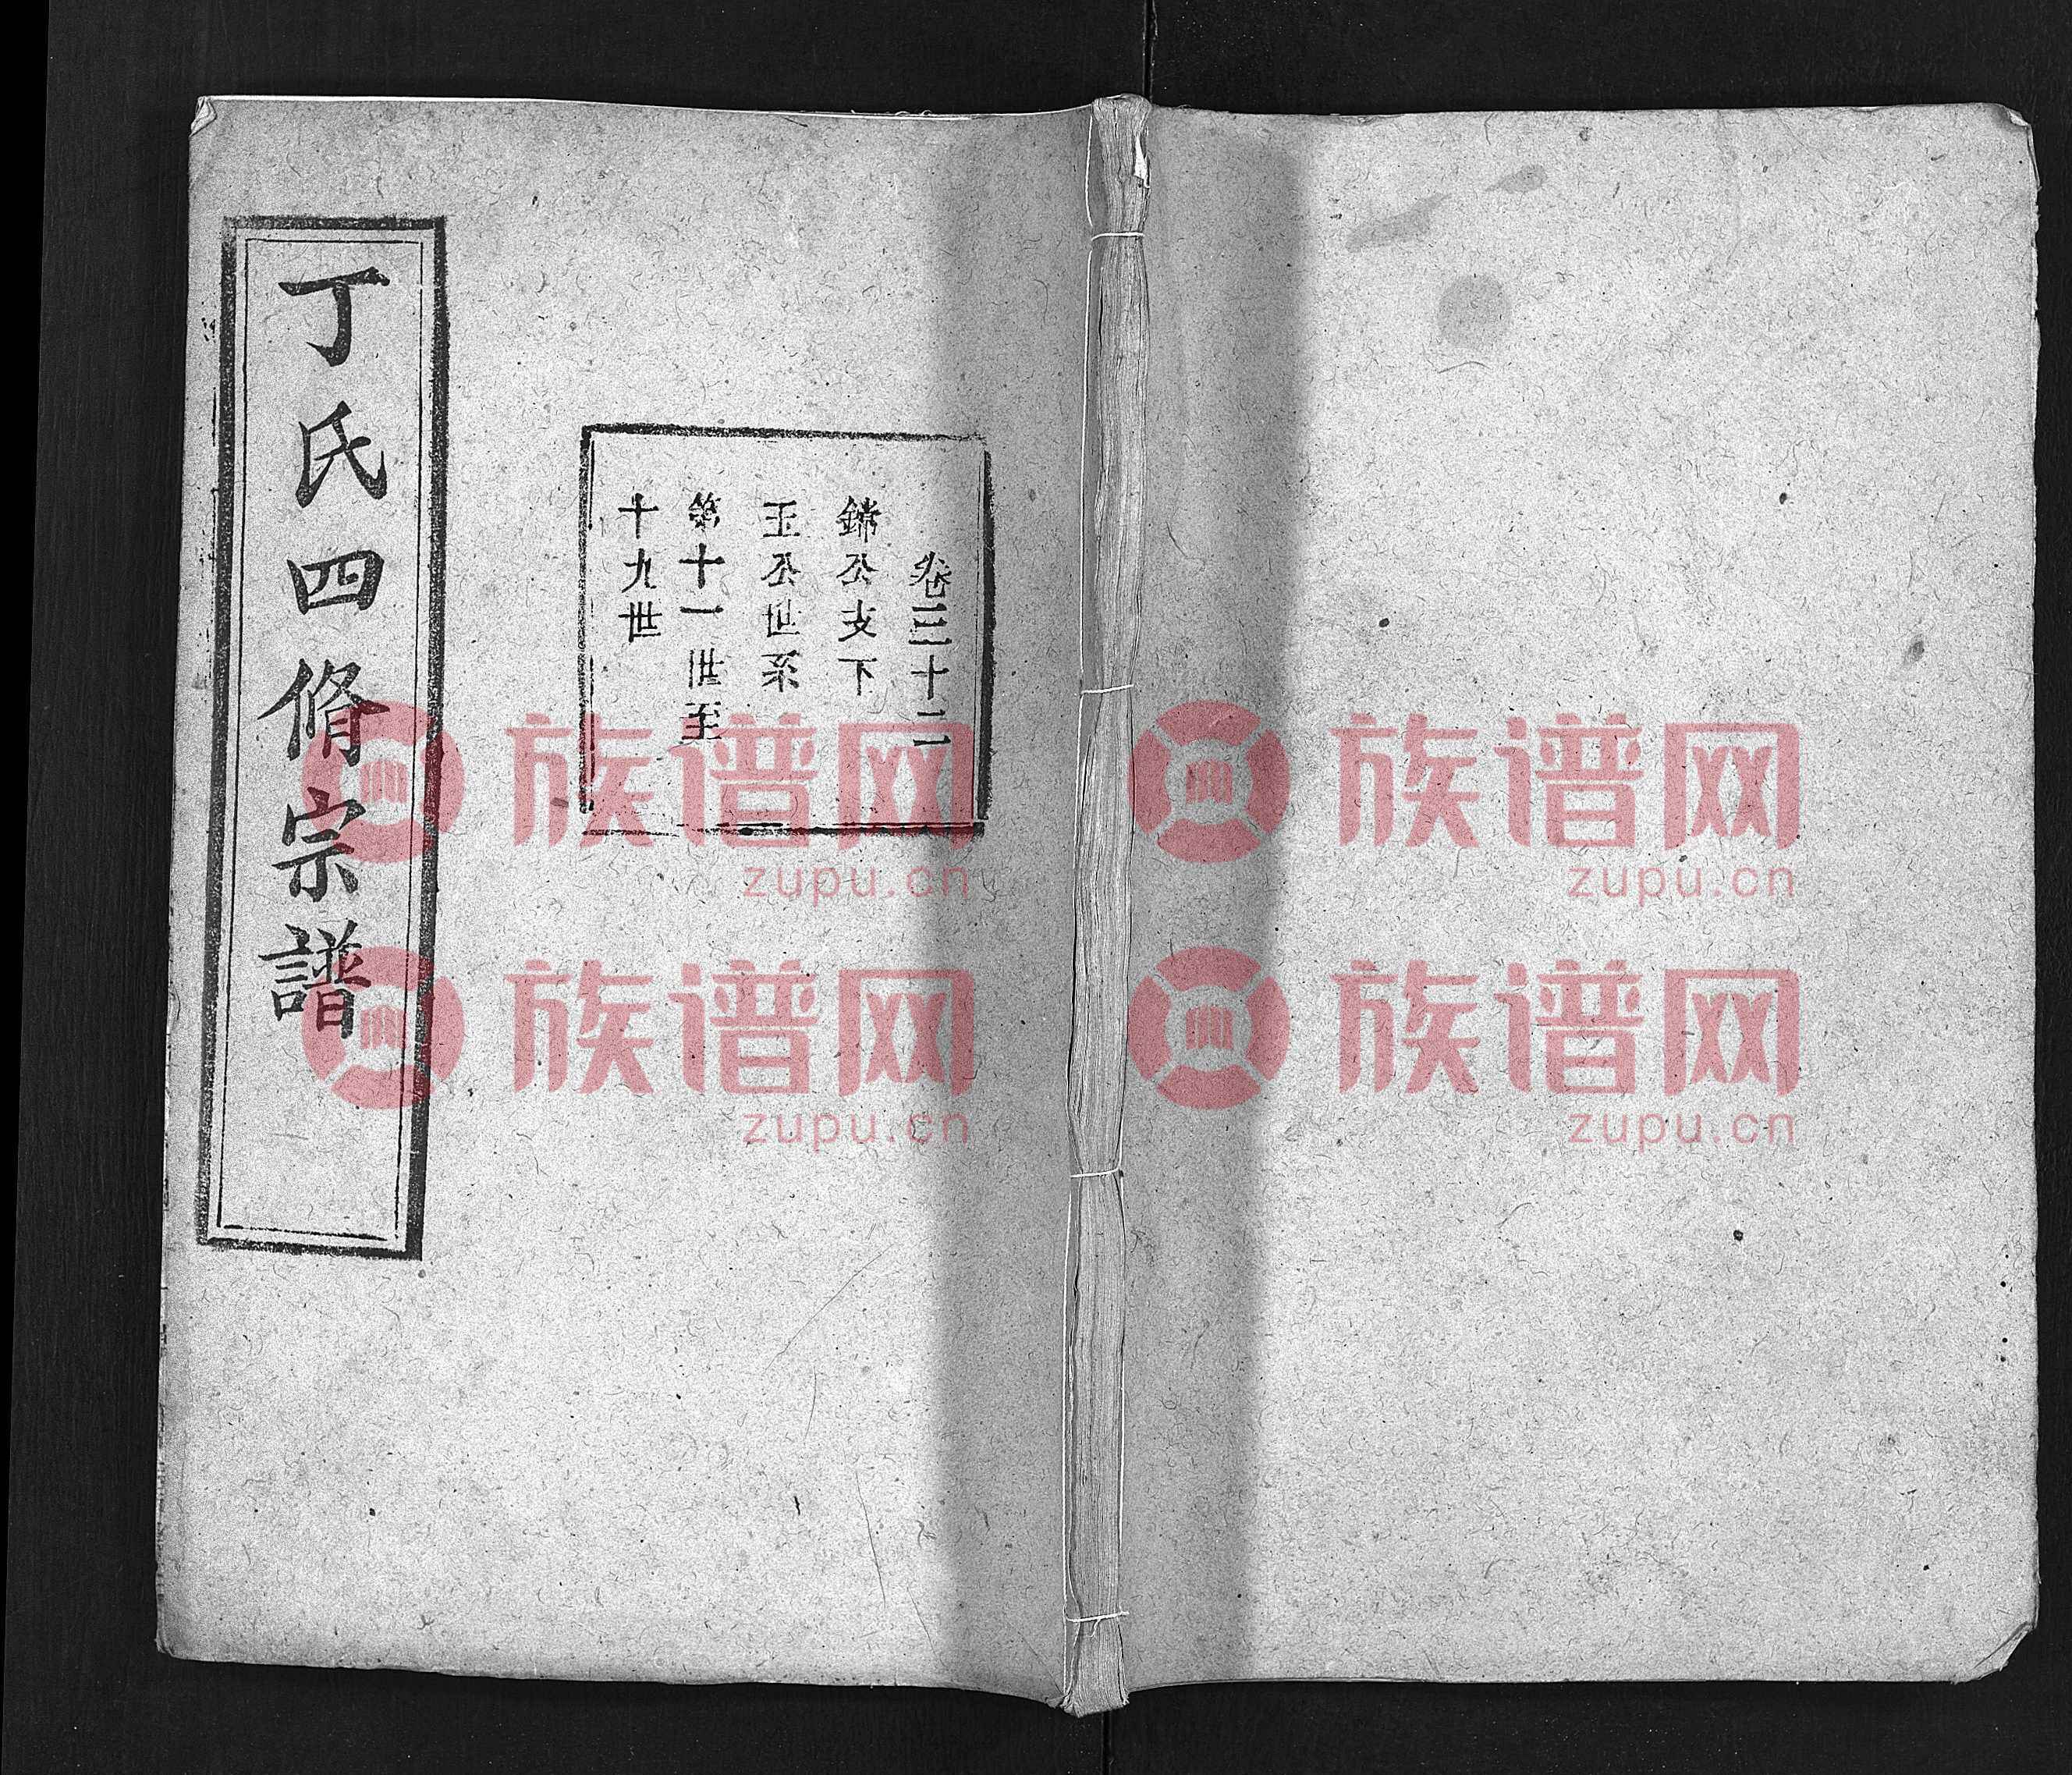 丁氏四脩宗譜
卷三十二
公支下
玉公世系
第十一世至
十九世
族谱网
zupu.cn
族谱网
zupu.cn
族谱网
zupu.cn
族谱网
zupu.cn